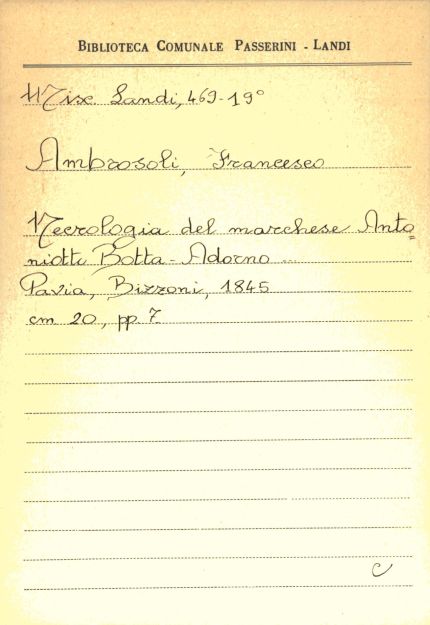 BIBLIOTECA COMUNALE PASSERINI - LANDI
Misc. Landi, 469-19°
Ambrosoli, Francesco
Necrologia del marchese Anto=
niotti Botta-Adorno...
Pavia, Bizzoni, 1845
cm 20, pp. 7
C